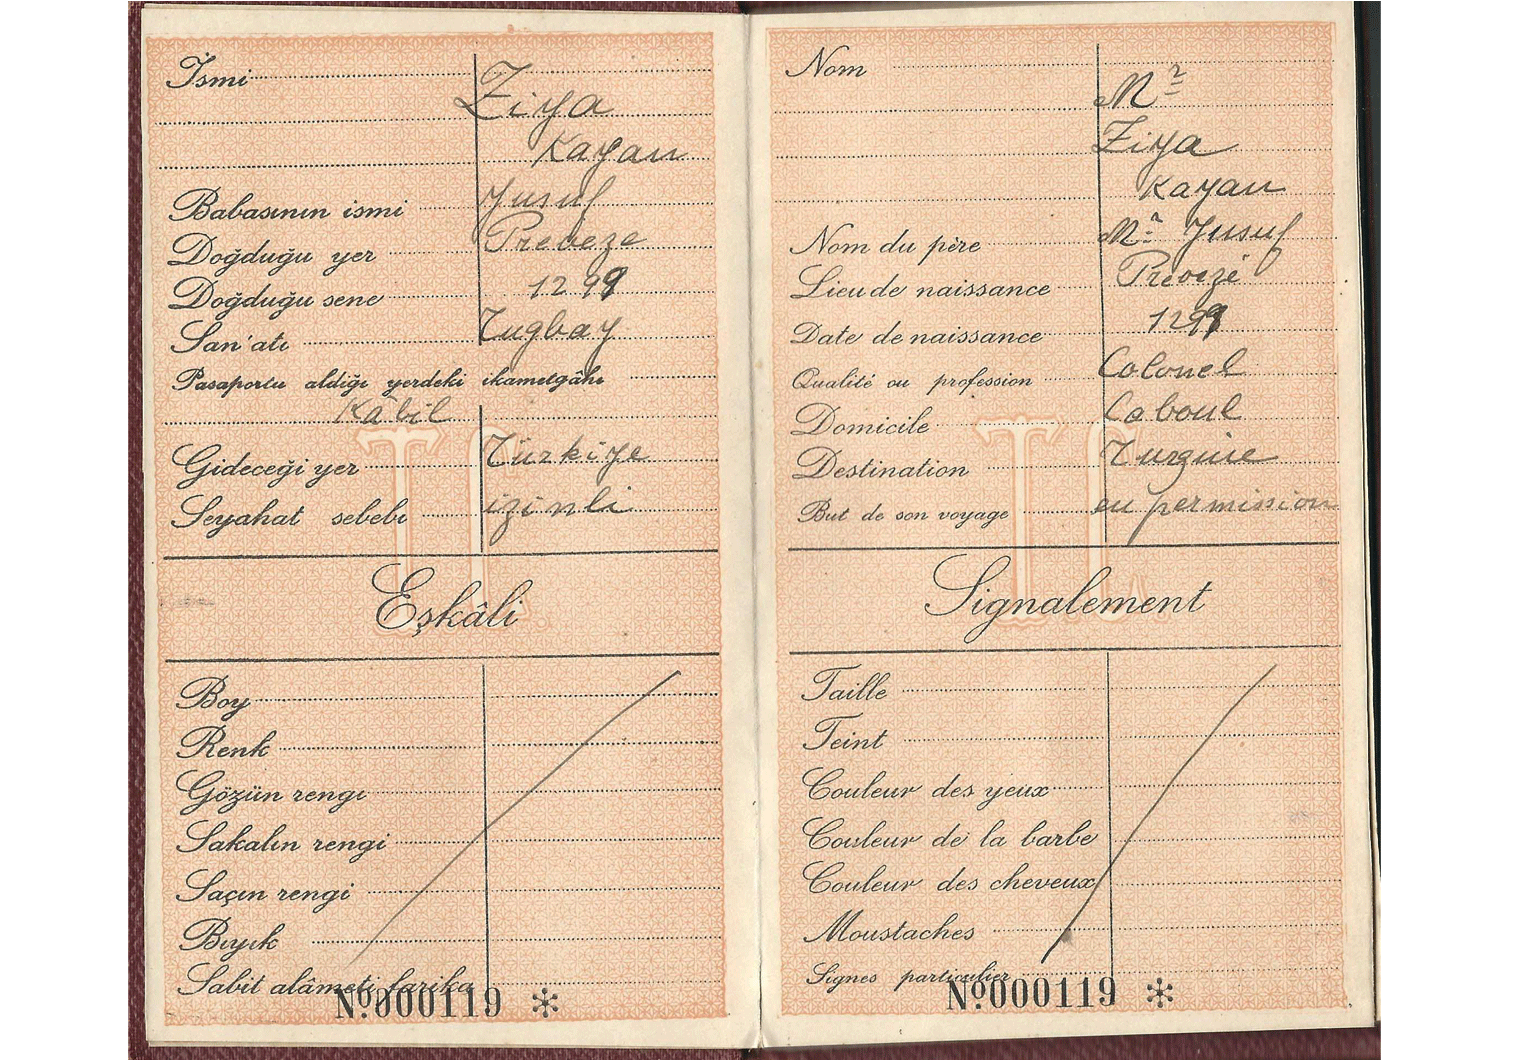 İsmi Ziya
Kayan
Babasının ismi Yusuf
Doğduğu yer Preveze
Doğduğu sene 1299
San'atı Tugbay
Pasaportu aldığı yerdeki ikametgâhı
Kâbil
Gideceği yer Türkiye
Seyahat sebebi izinli
T.C.
Eşkâli
Boy
Renk
Gözün rengi
Sakalın rengi
Saçın rengi
Bıyık
Sabit alâmeti farika
No. 000119 *
Nom
Mr
Ziya
Kayan
Nom du père Mr Yusuf
Lieu de naissance Prevezé
Date de naissance 1299
Qualité ou profession Colonel
Domicile Caboul
Destination Turquie
But de son voyage en permission
T.C.
Signalement
Taille
Teint
Couleur des yeux
Couleur de la barbe
Couleur des cheveux
Moustaches
Signes particulier
No. 000119 *